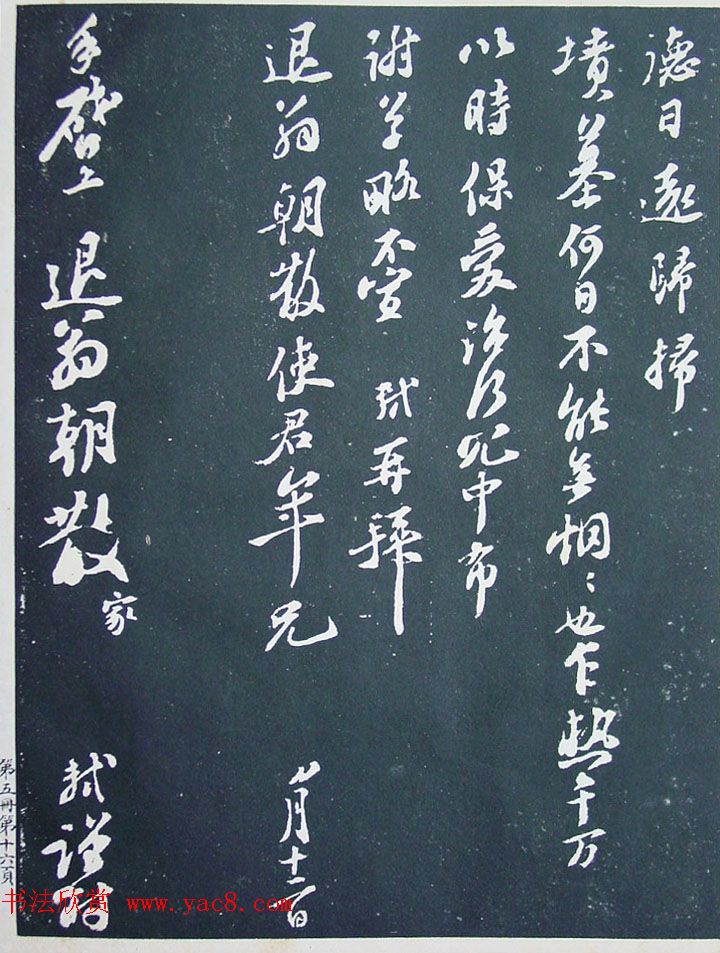 德日遠歸掃
墳墓何日不能無惘〻也乍熱千万
以時保愛治行冗中布
謝草略不宣 軾再拜
退翁朝散使君年兄
月十二日
手啓上 退翁朝散家 軾謹封
第五冊第十六頁
书法欣赏 www.yac8.com